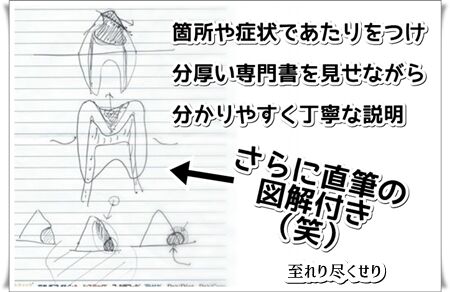 箇所や症状であたりをつけ
分厚い専門書を見せながら
分かりやすく丁寧な説明
さらに直筆の
図解付き
（笑）
至れり尽くせり